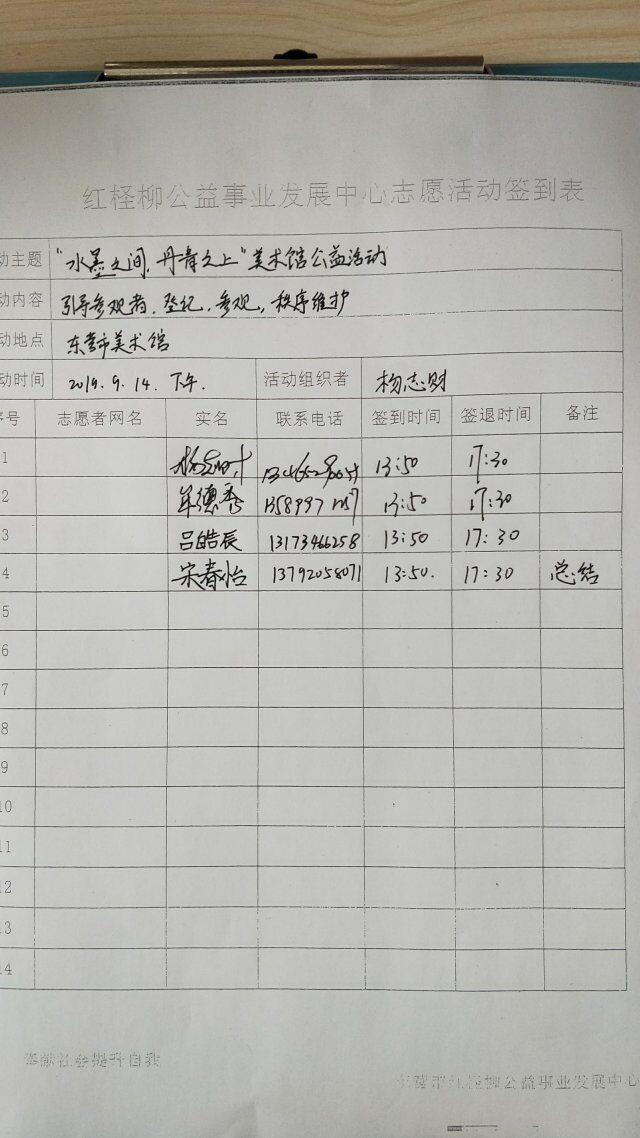 红柽柳公益事业发展中心志愿活动签到表
动主题 “水墨之间,丹青之上”美术馆公益活动
动内容 引导参观者、登记、参观,秩序维护
动地点 东营市美术馆
动时间 2019.9.14.下午. 活动组织者 杨志财
序号 志愿者网名 实名 联系电话 签到时间 签退时间 备注
1 13:50 17:30
2 单德秀 13:50 17:30
3 吕皓辰 13173466258 13:50 17:30
4 宋春怡 13792058071 13:50. 17:30 总结
5
6
7
8
9
10
11
12
13
14
奉献社会提升自我
东营市红柽柳公益事业发展中心